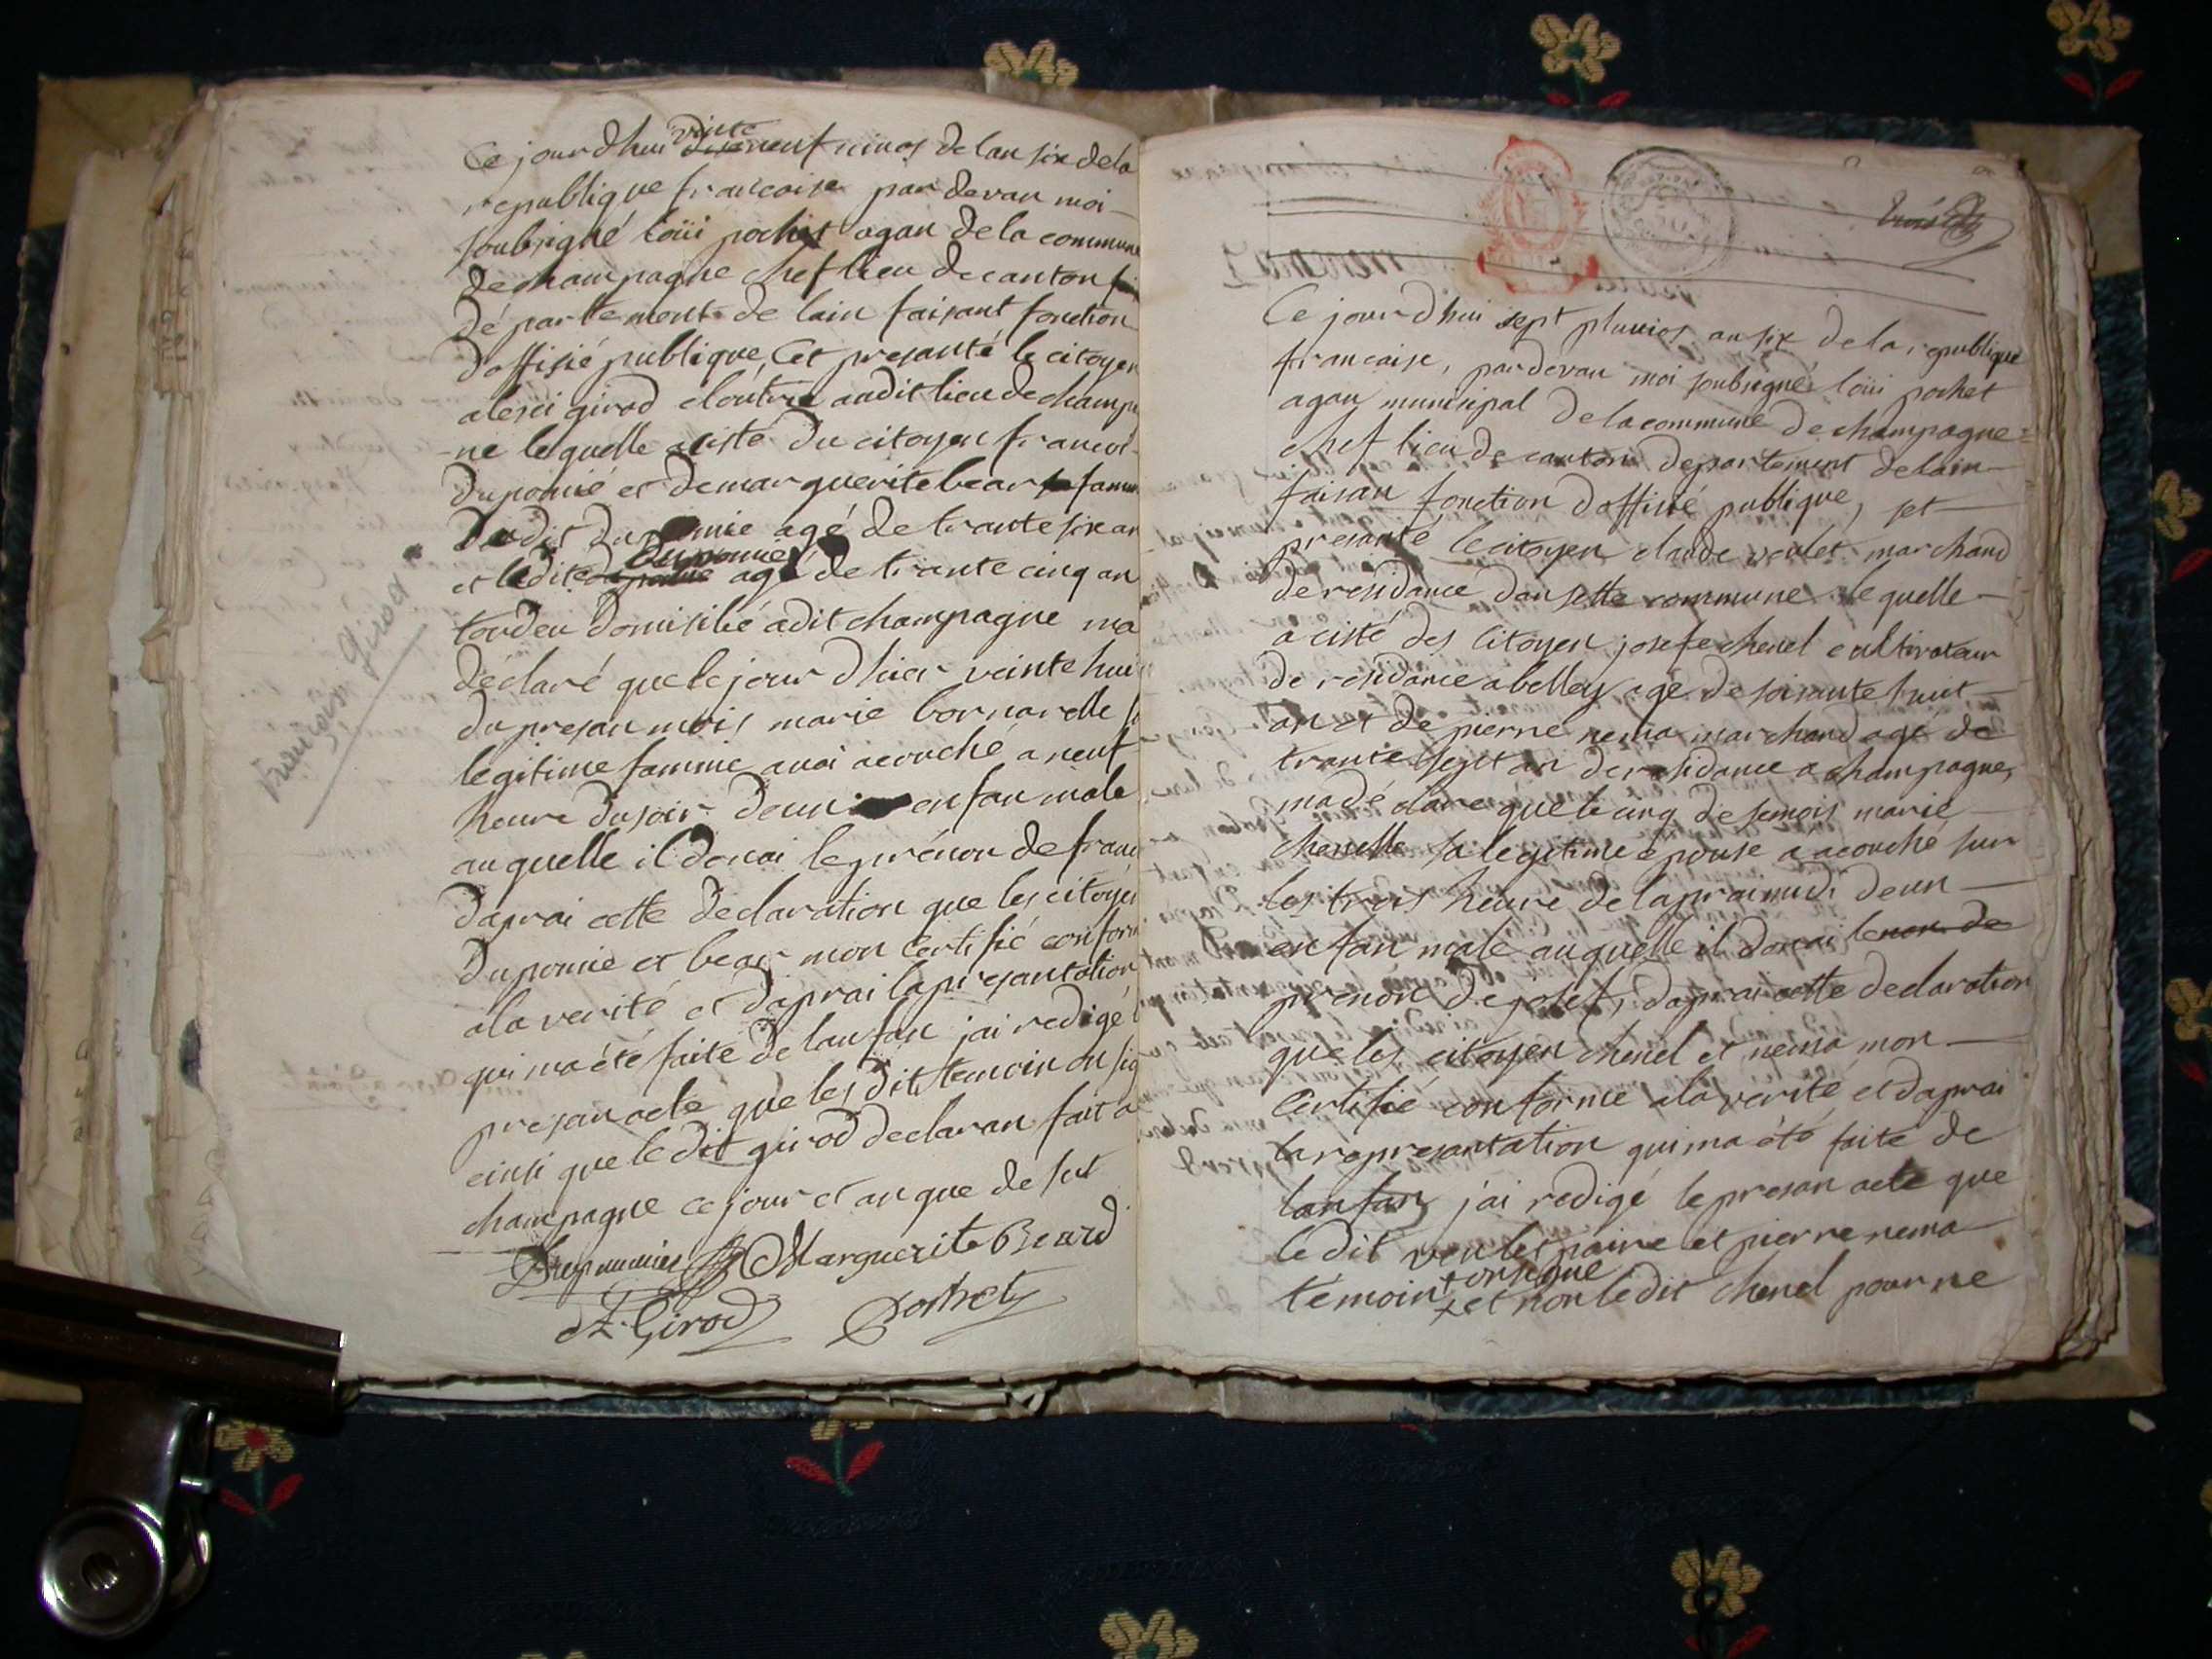 Ce jour dhui vinte neuf nivos de lan six de la
republique francaise par devan moi
soubsigné loüi pochet agan de la commune
de champagne chef lieu de canton
département de lain faisant fonction
doffisié publique, Cet presanté le citoyen
alexi girod cloutrie audit lieu de champa
-ne lequelle aciste du citoyen francoi
duponié et de marguerite bear famme
dudit duponnie agé de trante six an
et ledite duponnie agé de trante cinq an
toudeu domisilié adit champagne ma
déclaré que le jour dhier veinte hui
du presan mois marie bornarelle
legitime famme avoi acouché a neuf
heure du soir deun enfan male
au quelle il donai le prénon de franc
daprai cette declaration que les citoyen
duponnié et bear mon certifié conform
a la verité et daprai la presantation
qui ma été faite de lanfan jai redigé l
presan acte que les dit temoin on sig
einsi que le dit girod declaran fait a
champagne ce jour et an que de sus
Dupunnier Marguerite Beard
Az. Girod Pochet
françois girod
Ce jour dhui sept pluvios an six de la republique
francaise, par devan moi soubsigné loüi pochet
agan munisipal de la commune de champagne=
chef lieu de canton departement de lain
faisan fonction doffisié publique, set
presanté le citoyen claude veulet marchand
de residance dan sette commune lequelle
aciste des Citoyen josefe chenel cultivateur
de résidance a belley agé de soisante huit
an et de pierre nema marchand agé de
trante sept an de residance a champagne,
ma dé claré que le cinq de se mois marie
chenelle sa legitime épouse a acouché sur
les trois heure de laprai midi deun
enfan male au quelle il donai le non de
prenon de josef, daprai cette declaration
que les citoyen chenel et nema mon
Certifié conforme a la verité et daprai
la represantation qui ma été faite de
lanfan j'ai redigé le presan acte que
le dit veulet paire et pierre nema
témoin + on signe
x et non le dit chenel pour ne